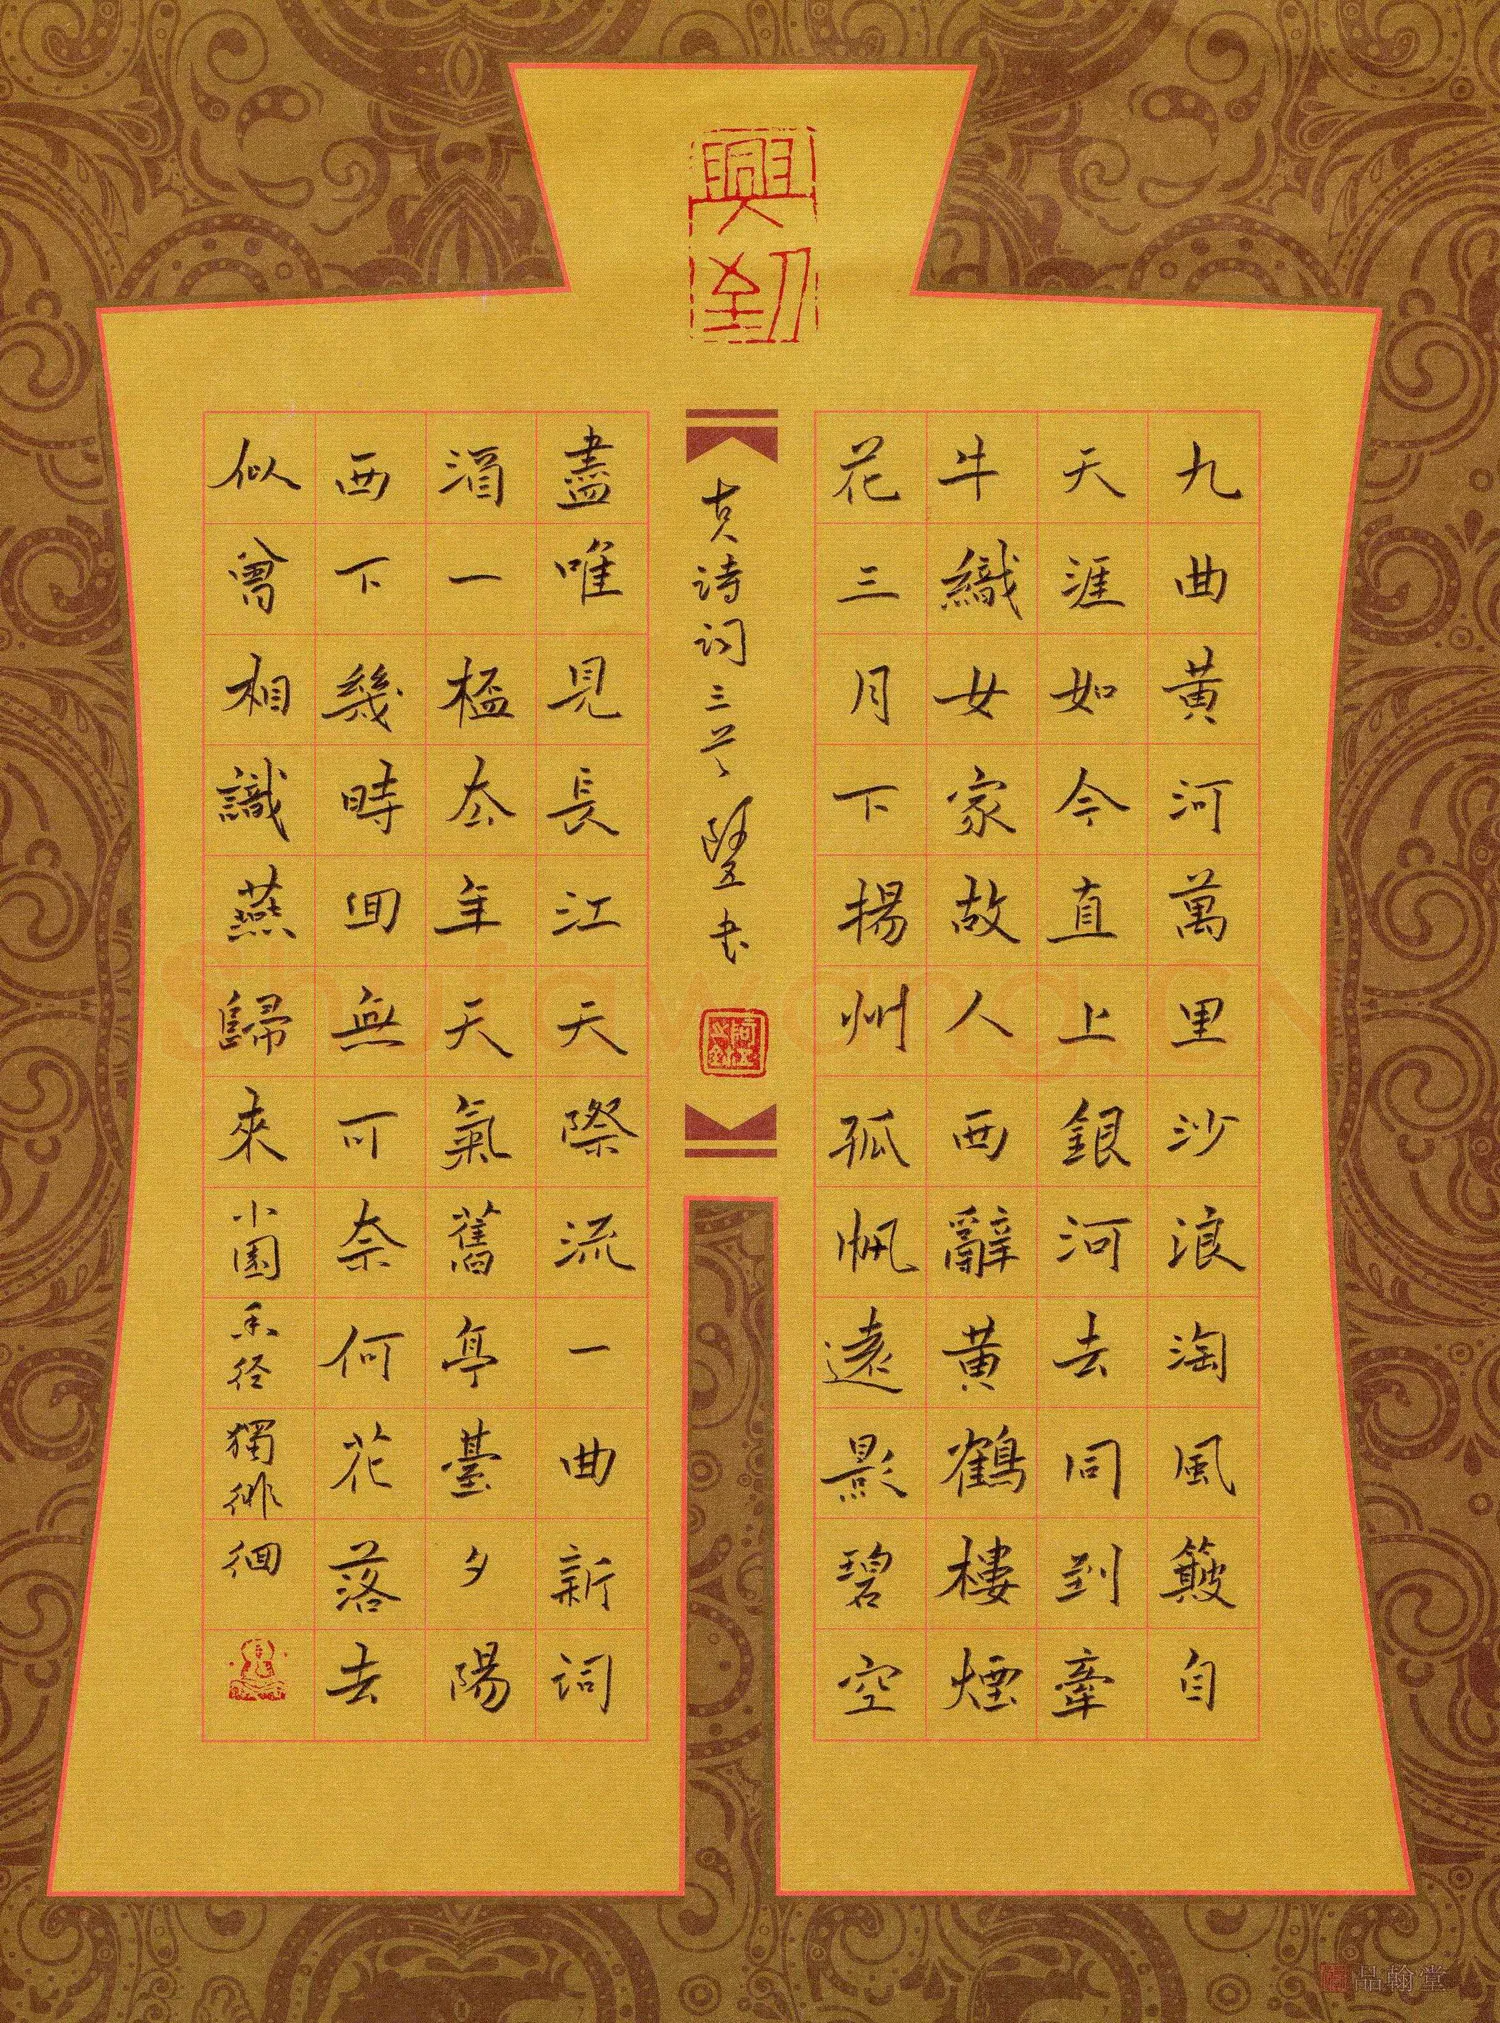 興到
九曲黃河萬里沙浪淘風簸自
天涯如今直上銀河去同到牽
牛織女家故人西辭黃鶴樓煙
花三月下揚州孤帆遠影碧空
盡唯見長江天際流一曲新詞
酒一杯去年天氣舊亭臺夕陽
西下幾時囬無可奈何花落去
似曾相識燕歸來小園香径獨徘徊
古诗词三首 书
Shufawang.CN
品翰堂